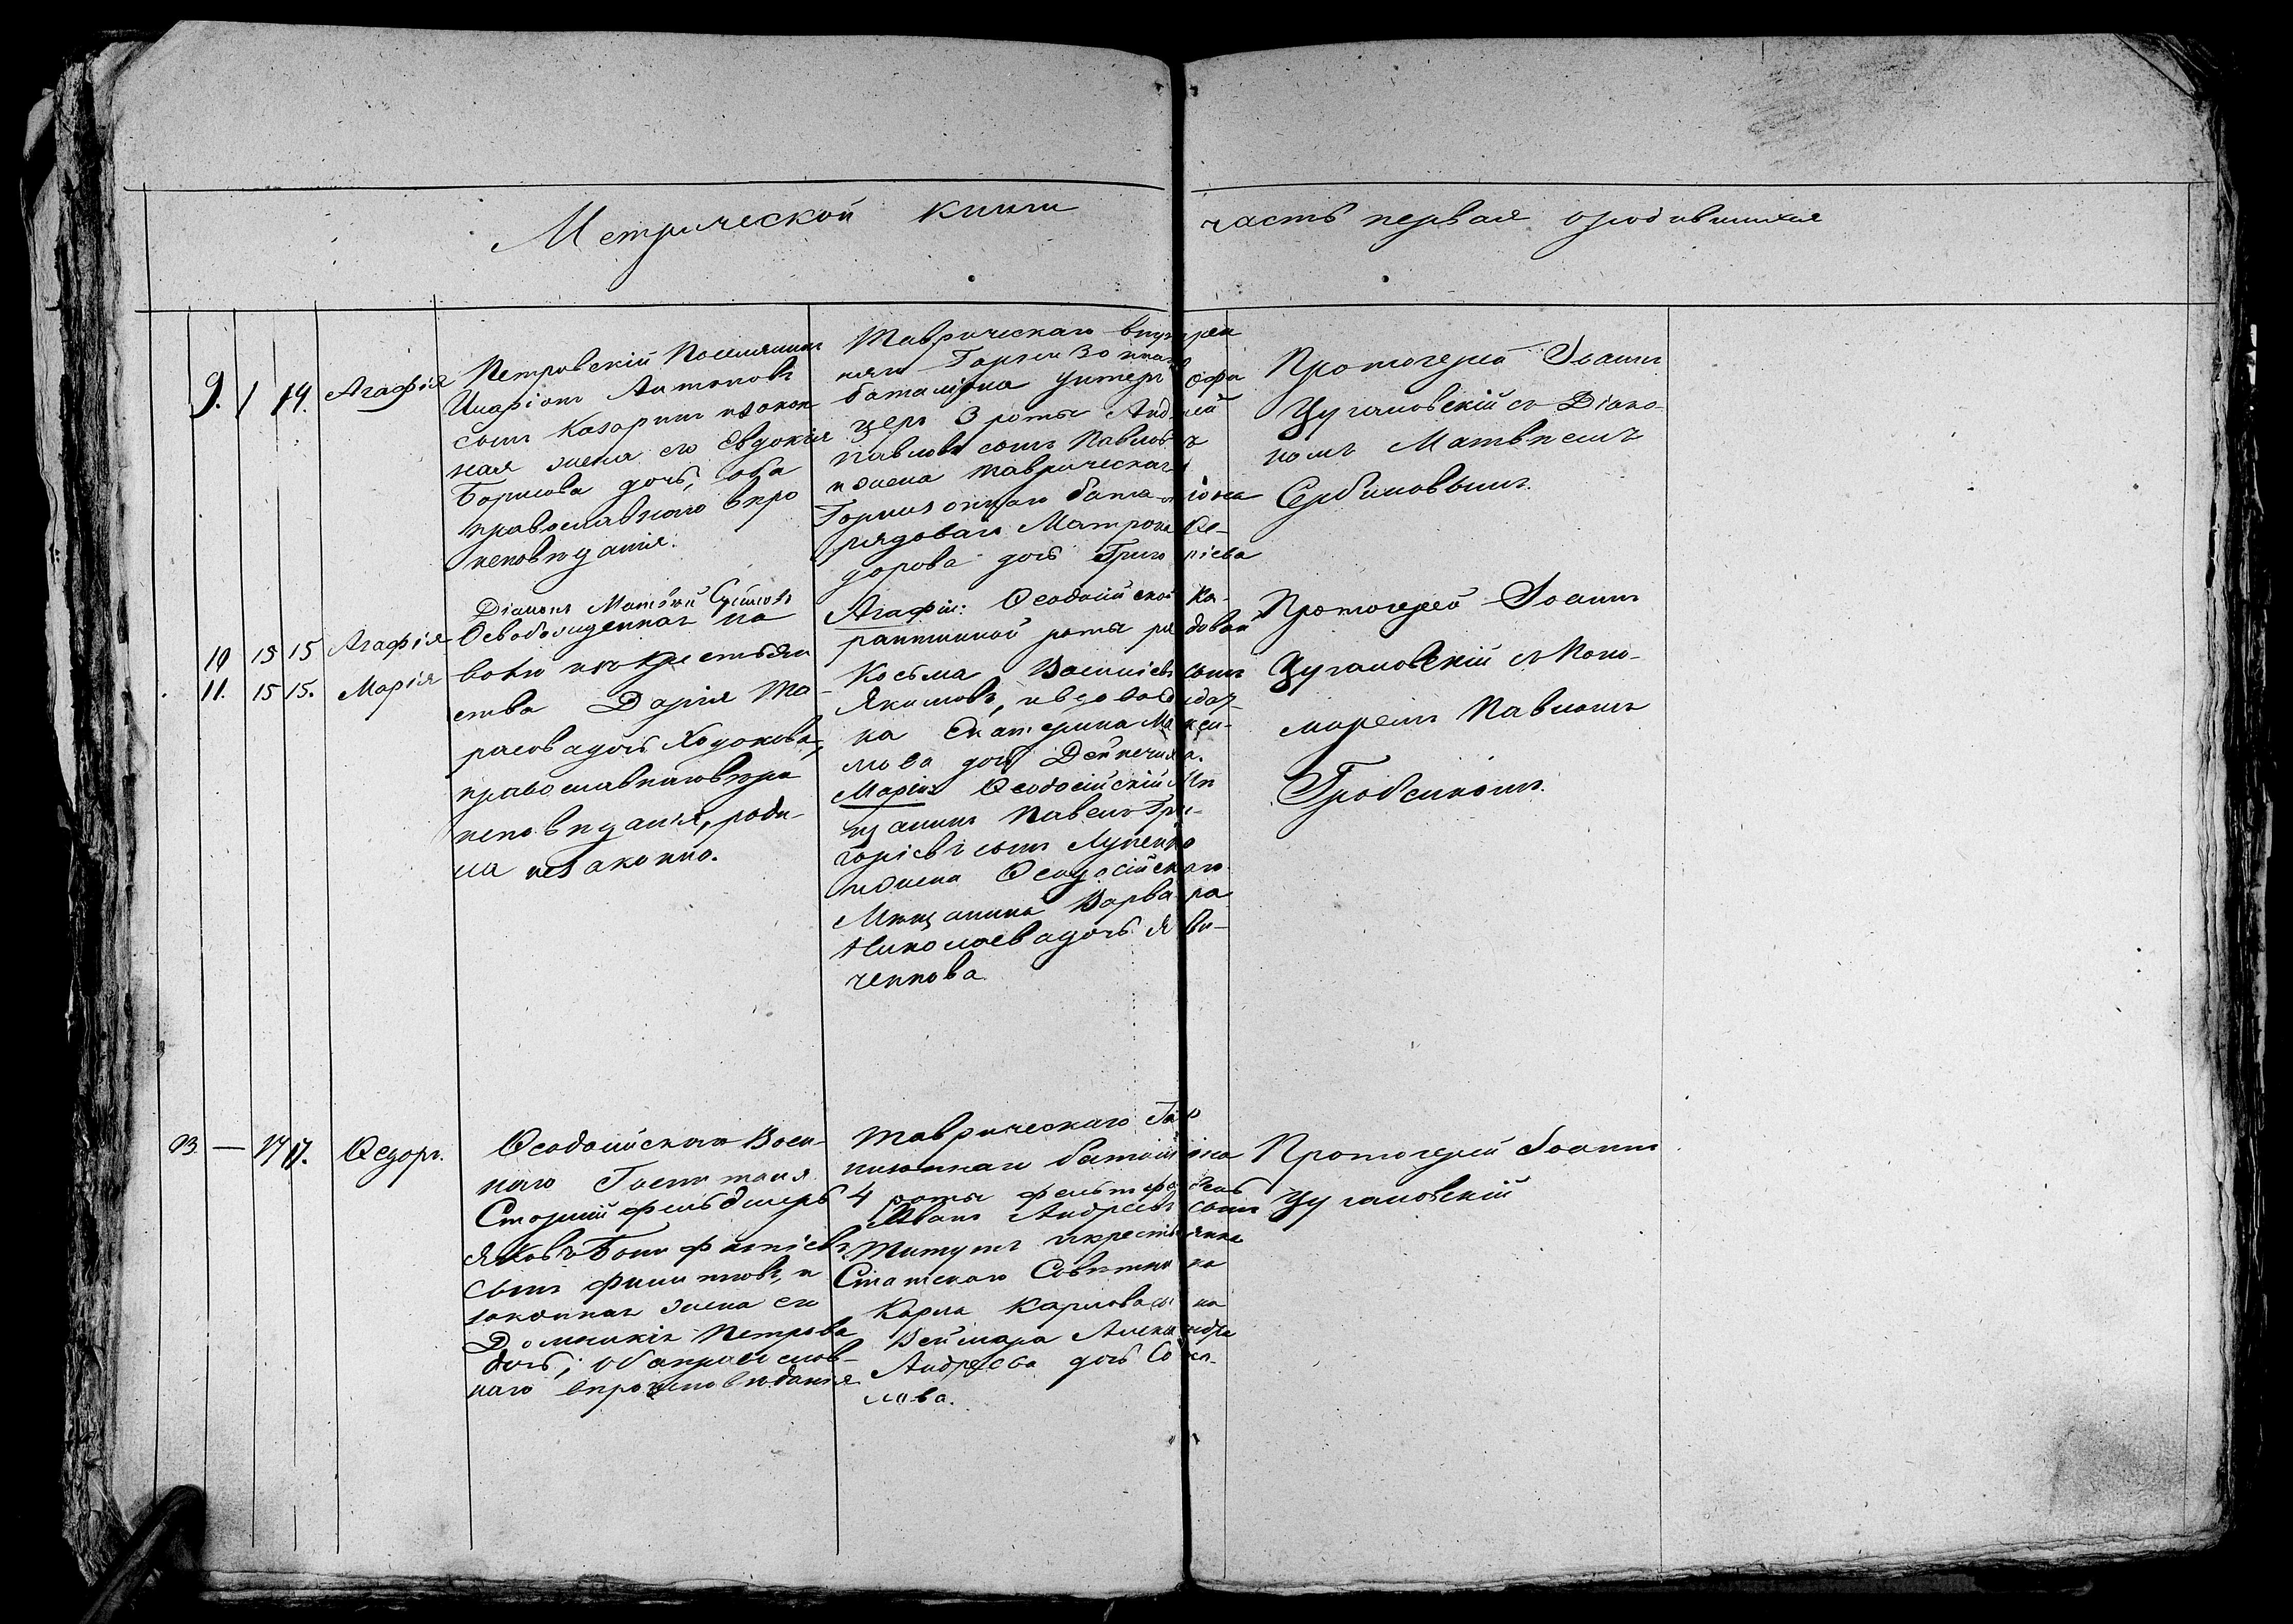 Метрической книги часть первая о родившихся
9. 1 14. Агафія
Петровскій Поселянинъ
Иларіонъ Антоновъ
сынъ Казаринъ и закон
ная жена его Евдокія
Борисова дочь, оба
православнаго виро
исповѣданія.
Таврическаго внутрен
няго Гарнизоннаго
баталіона унтеръ офи
церъ 3 роты Андрей
Павловъ сынъ Павловъ
и жена Таврическаго
Гарнизоннаго баталіона
рядоваго Матрона Ѳе-
дорова дочь Григоріева
Протоіерей Іоаннъ
Цугановскій съ Діако-
номъ Матвѣемъ
Сербиновымъ.
10 15 15 Агафія
11. 15 15. Марія
Діаконъ Матѳій
Освобожденная по
волѣ изъ крестьян
ства Дарія Та-
расова дочь Ходокова,
православнаго вѣро
исповѣданія, роди-
ла незаконно.
Агафіи: Ѳеодосійской Ка-
рантинной роты рядовой
Косьма Васильевъ сынъ
Якимовъ, и вдова
ка Екатерина Макси-
мова дочь
Маріи: Ѳеодосійскій Мѣ
щанинъ Павелъ Гри-
горіевъ сынъ Луценко
и жена Ѳеодосійскаго
Мѣщанина Варвара
Николаева дочь Яви-
ченкова
Протоіерей Іоаннъ
Цугановскій съ Поно-
маремъ Павломъ
Гробенкомъ.
23. — 17 17. Ѳедоръ.
Ѳеодосійскаго Воен-
наго Госпиталя
Старшій фельдшеръ
Яковъ Бонифатіевъ
сынъ Филиповъ, и
законная жена его
Домникія Петрова
дочь; оба православ-
наго вироисповѣданія
Таврическаго Гар
низоннаго баталіона
4 роты фельтфебель
Иванъ Андреевъ сынъ
Титунъ и крестьянка
Статскаго Совѣтника
Карла Карлова сына
Веймара Александра
Андреева дочь Соко-
лова.
Протоіерей Іоаннъ
Цугановскій